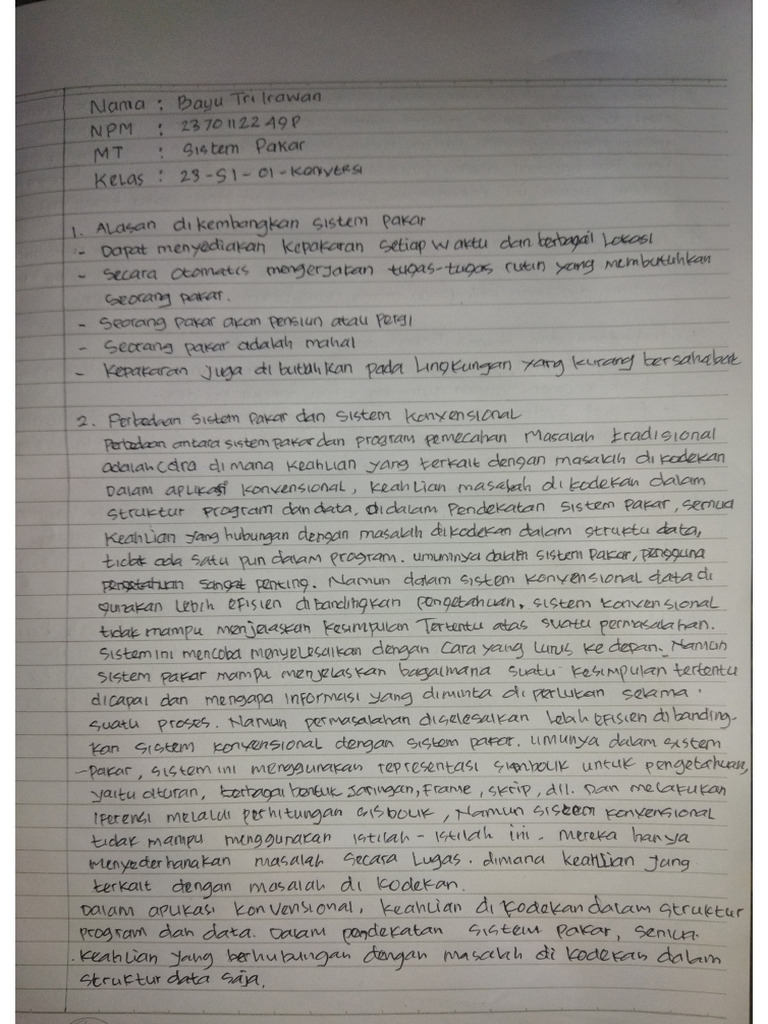 Nama : Bayu Tri Irawan
NPM : 2370112249P
MT : Sistem Pakar
Kelas : 23-S1-01-Konversi
1. Alasan dikembangkan sistem pakar
- Dapat menyediakan kepakaran setiap waktu dan berbagai Lokasi
- Secara otomatis mengerjakan tugas-tugas rutin yang membutuhkan
seorang pakar.
- Seorang pakar akan pensiun atau pergi
- Seorang pakar adalah mahal
- Kepakaran juga dibutuhkan pada Lingkungan yang kurang bersahabat
2. Perbedaan sistem pakar dan sistem konvensional
Perbedaan antara sistem pakar dan program pemecahan masalah tradisional
adalah cara di mana keahlian yang terkait dengan masalah dikodekan
Dalam aplikasi konvensional, keahlian masalah dikodekan dalam
struktur program dan data, didalam pendekatan sistem pakar, semua
keahlian yang hubungan dengan masalah dikodekan dalam struktu data,
tidak ada satu pun dalam program. umumnya dalam sistem pakar, pengguna
pengetahuan sangat penting. Namun dalam sistem konvensional data di
gunakan lebih efisien dibandingkan pengetahuan, sistem konvensional
tidak mampu menjelaskan kesimpulan Tertentu atas suatu permasalahan.
Sistem ini mencoba menyelesaikan dengan cara yang lurus ke depan. Namun
sistem pakar mampu menjelaskan bagaimana suatu kesimpulan tertentu
dicapai dan mengapa informasi yang diminta diperlukan selama
suatu proses. Namun permasalahan diselesaikan lebih efisien dibanding-
kan sistem konvensional dengan sistem pakar. umunya dalam sistem
-pakar, sistem ini menggunakan representasi simbolik untuk pengetahuan,
yaitu aturan, berbagai bentuk jaringan, frame, skrip, dll. Dan melakukan
iferensi melalui perhitungan sisbolik, Namun sistem konvensional
tidak mampu menggunakan istilah-istilah ini. mereka hanya
menyederhanakan masalah secara lugas. dimana keahlian yang
terkait dengan masalah di kodekan.
Dalam aplikasi konvensional, keahlian di kodekan dalam struktur
program dan data. Dalam pendekatan sistem pakar, semua
keahlian yang berhubungan dengan masalah di kodekan dalam
struktur data saja.